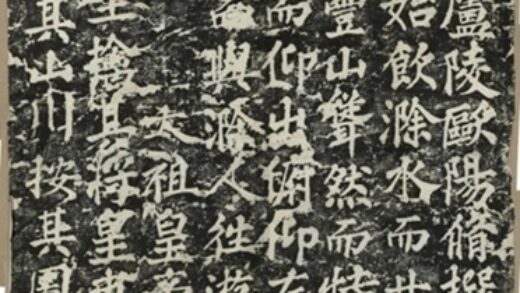 廬陵歐陽脩撰
始飲滁水而甘
豐山聳然而特
而仰出俯仰左
與滁人往遊
太祖皇帝
生擒其將皇甫
其山川按其圖